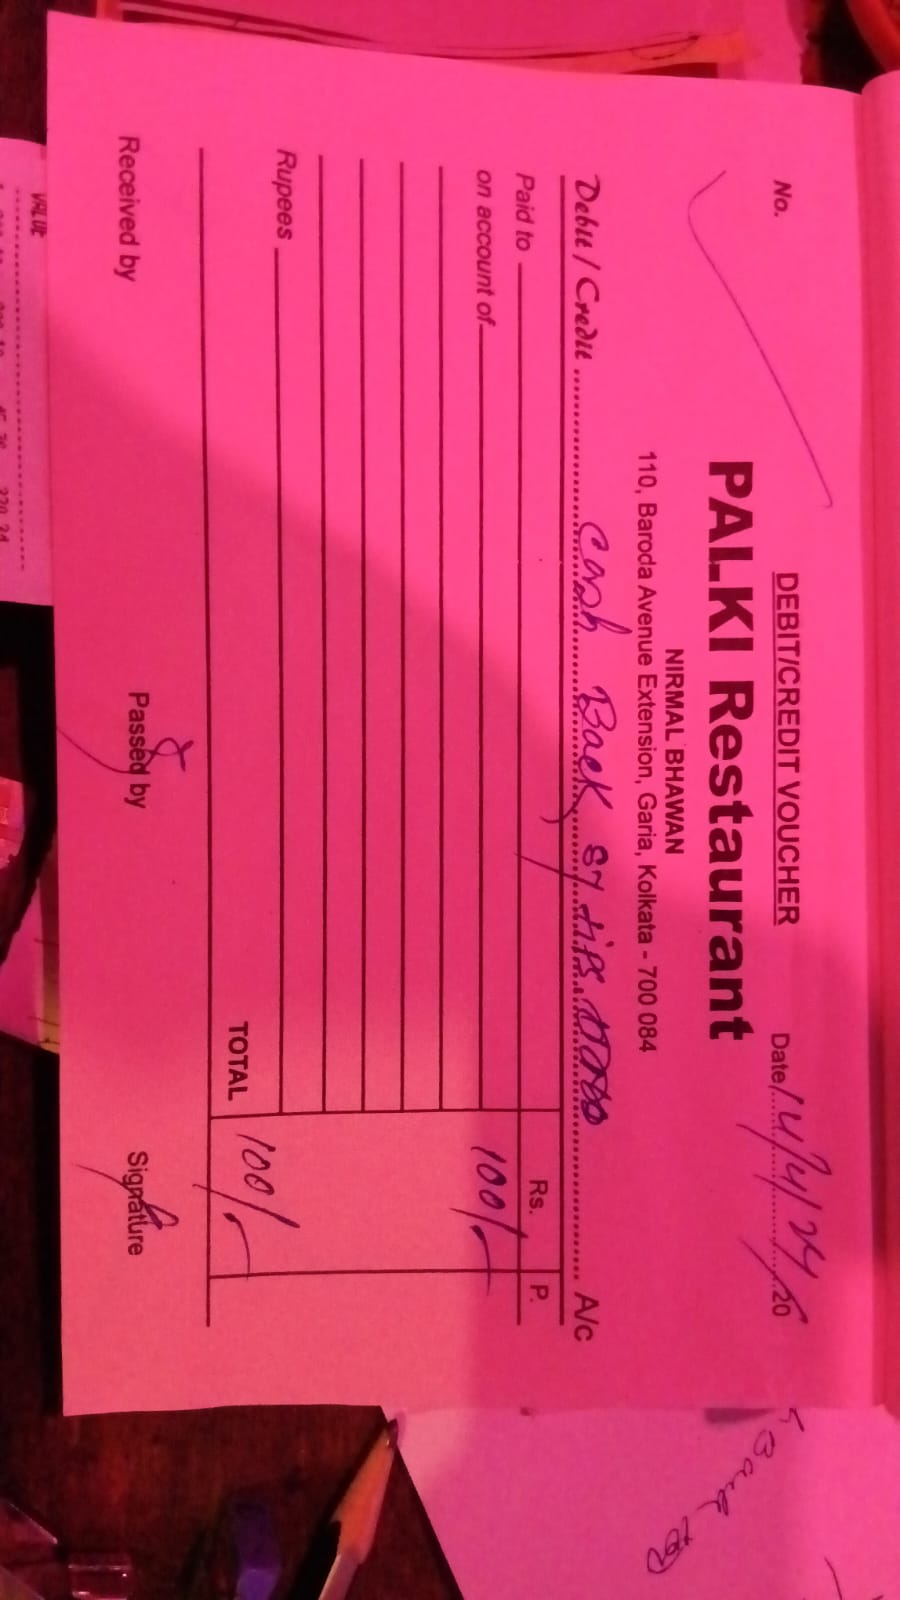 DEBIT/CREDIT VOUCHER
No.
Date 14/4/24 20
PALKI Restaurant
NIRMAL BHAWAN
110, Baroda Avenue Extension, Garia, Kolkata - 700 084
Debit / Credit Cash Back A/c
Paid to
Rs. P.
on account of 100/-
Rupees
TOTAL 100/-
Received by
Passed by
Signature
VALUE